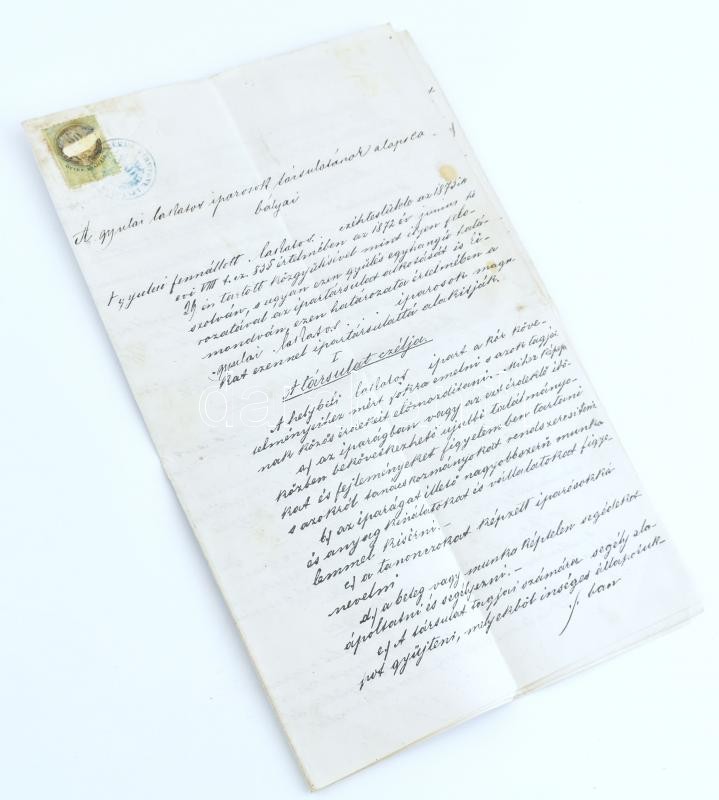 A gyulai lakatos iparosok társulatának alapsza-
bályai
A gyulai fennállott lakatos czéhtestülete az 1872ik
évi VIII t. cz. 83§ értelmében az 1872 év junius hó
29 én tartott közgyülésével mint ilyen felo-
szolván, s ugyan ezen gyülés egyhangú hatá-
rozatával az ipartársulat alkotását is ki-
mondván, ezen határozata értelmében a
gyulai lakatos iparosok magu-
kat ezennel ipartársulattá alakitják.
I
A társulat czélja.
A helybéli lakatos ipart a kor köve-
telményeihez mért fokra emelni s azok tagjai-
nak közös érdekeit előmozditani. Mihez képest
a) az iparágban vagy az ezt érdeklő idő-
közben bekövetkezhető ujabb találmányo-
kat és fejleményeket figyelemben tartani
s azokról tanácskozmányokat rendszeresiteni
b) az iparágat illető nagyobbszerű munka
és anyag kinálatokat és vállalatokat figye-
lemmel kisérni.-
c) a tanonczokat képzett iparosokká
nevelni
d) a beteg vagy munka képtelen segédeket
ápoltatni és segélyezni.-
e) A társulat tagjai számára segély ala-
pot gyüjteni, melyekből inséges állapotuk-
ban